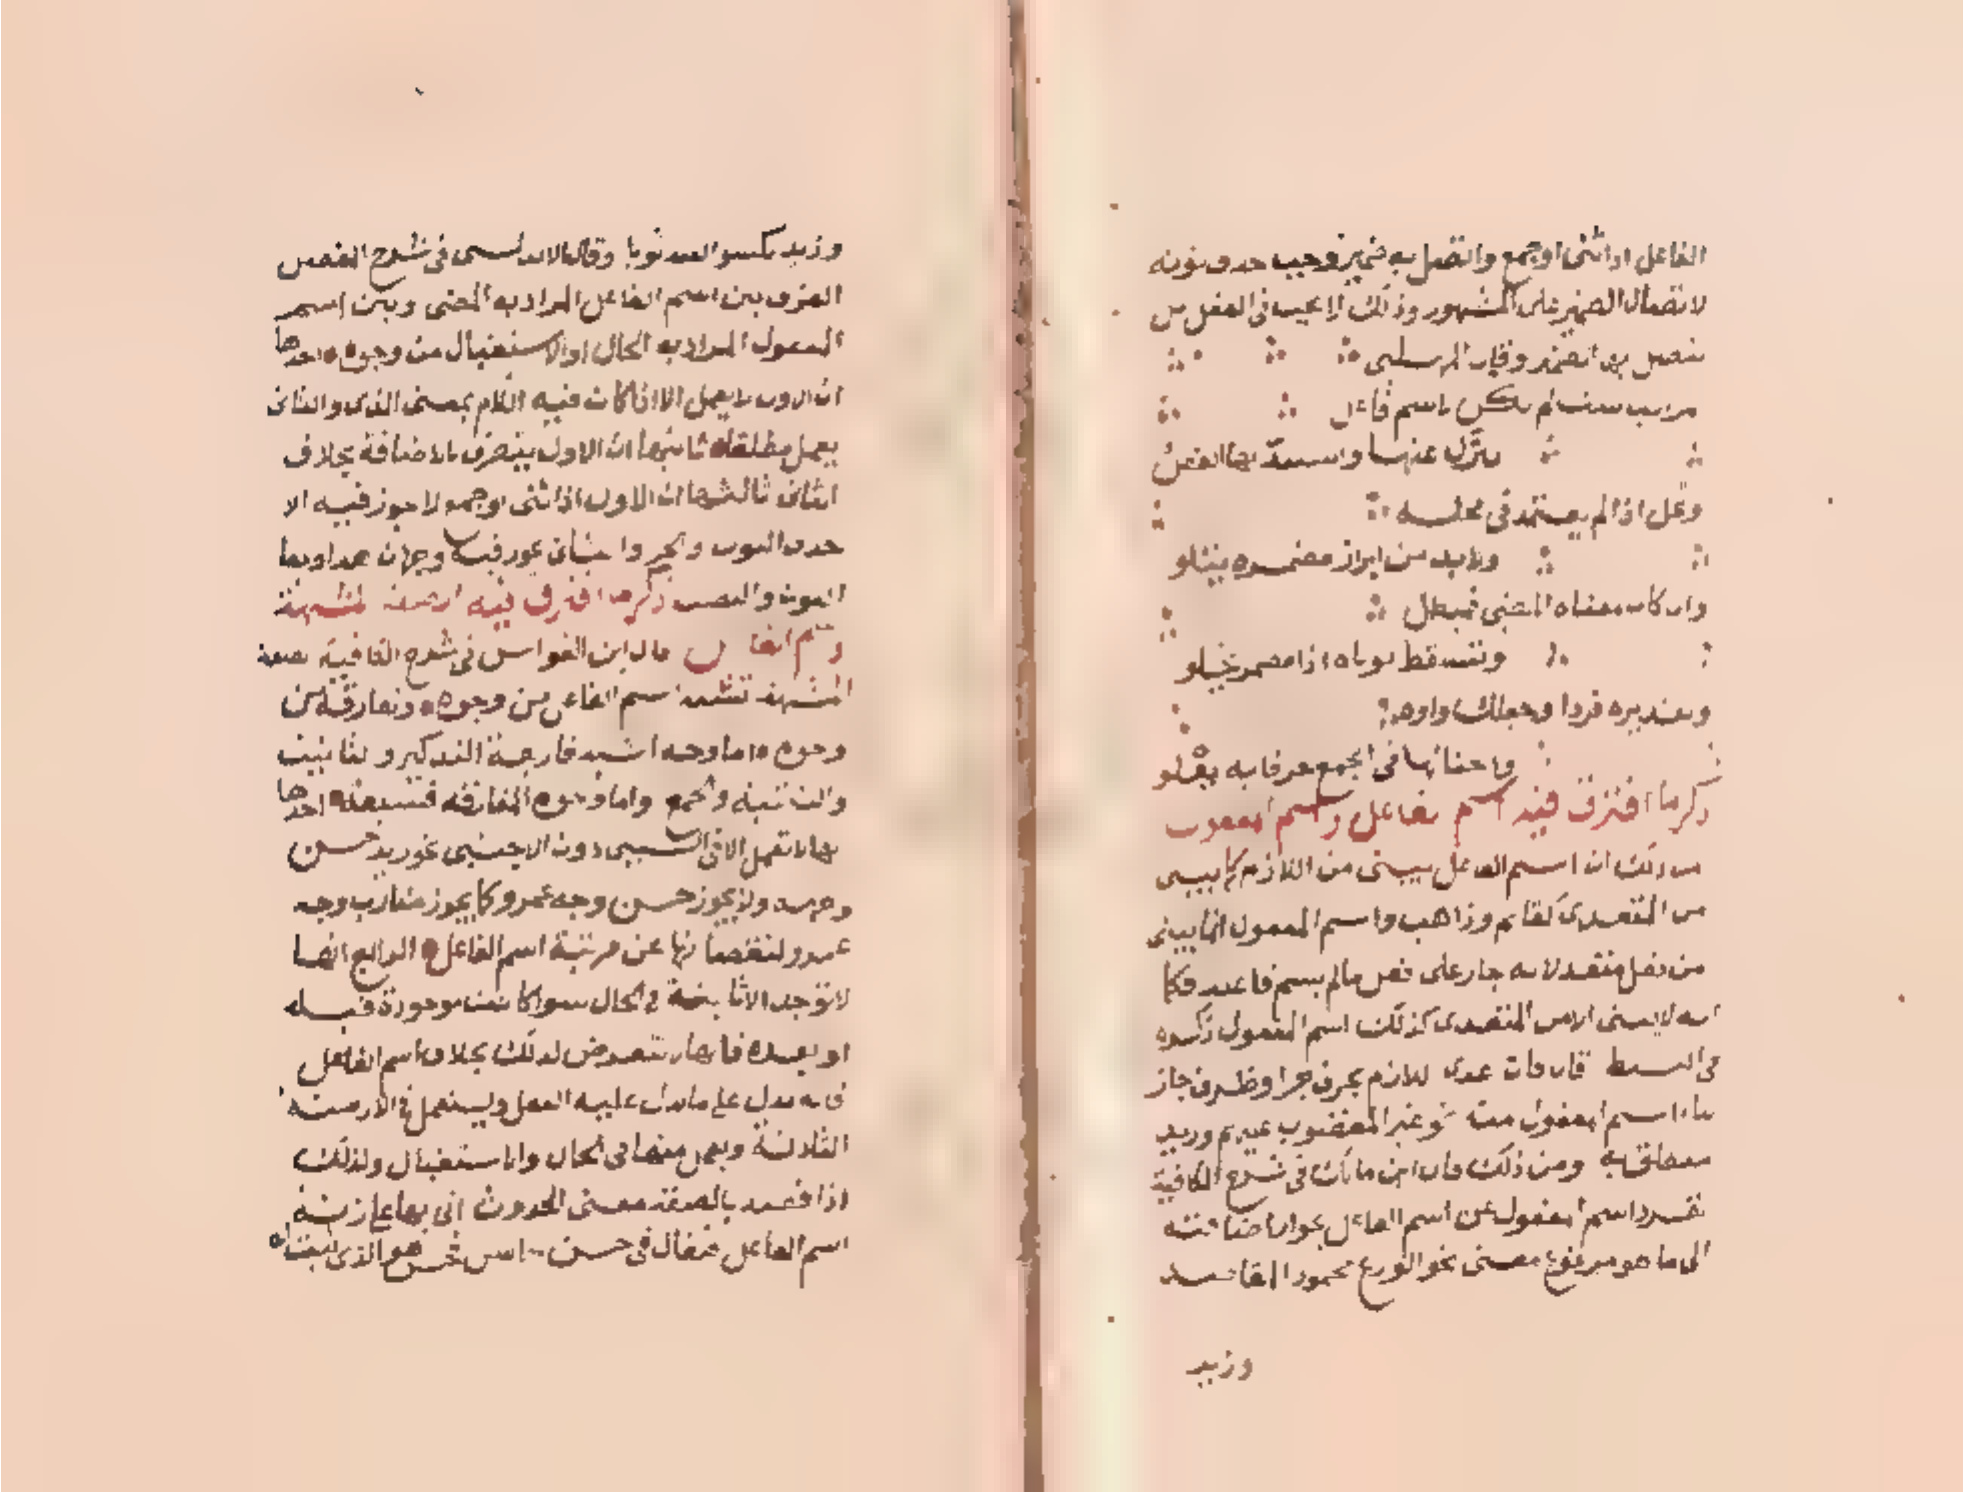 الفاعل اذا ثنى او جمع واتصل به ضمير وجب حذف نونه
لاتصال الضمير على المشهور وذلك لا يجب فى الفعل
يتصل به الضمير وقال المهلبى
باسم فاعل
ينزل عنها واستبد بها الفعل
وعل اذا لم يعتمد فى محله
ولابد من ابراز مضمره يتلو
وان كان معناه المضى فمبطل
وتسقط نوناه اذا مضمر يخلو
وتقديره فردا وجعلك واوه
واحنائها فى الجمع حرفا به يعلو
ذكر ما افترق فيه اسم الفاعل واسم المفعول
من ذلك ان اسم الفاعل يبنى من اللازم كما يبنى
من المتعدى كقائم وذاهب واسم المفعول انما يبنى
من فعل متعد لانه جار على فعل ما لم يسم فاعله فكما
انه لا يبنى الا من المتعدى كذلك اسم المفعول ذكره
فى البسيط قال فان عدى اللازم بحرف جر او ظرف جاز
بناء اسم المفعول منه نحو غير المغضوب عليهم وزيد
منطلق به ومن ذلك قال ابن مالك فى شرح الكافية
انفرد اسم المفعول عن اسم الفاعل بجواز اضافته
الى ما هو مرفوع معنى نحو الورع محمود المقاصد
وزيد
وزيد مكسو العبد ثوبا وقال الاندلسى فى شرح المفصل
الفرق بين اسم الفاعل المراد به المضى وبين اسم
المراد به الحال او الاستقبال من وجوه احدها
ان الاول لا يعمل الا اذا كان فيه اللام بمعنى الذى والثانى
يعمل مطلقا ثانيها ان الاول يتعرف بالاضافة بخلاف
الثانى ثالثها ان الاول اذا ثنى او جمع لا يجوز فيه الا
حذف النون والجر والثانى يجوز فيه وجهان هذا وبقاء
النون والنصب ذكر ما افترق فيه الصفة المشبهة
واسم الفاعل قال ابن القواس فى شرح الكافية الصفة
المشبهة تشبه اسم الفاعل من وجوه وتفارقه من
وجوه اما وجه الشبه فاربعة التذكير والتانيث
والتثنية والجمع واما وجوه المفارقة فسبعة احدها
انها لا تعمل الا فى السببى دون الاجنبى نحو زيد حسن
وجهه ولا يجوز حسن وجه عمرو كما يجوز ضارب وجه
عمرو لنقصانها عن مرتبة اسم الفاعل الرابع انها
لا توجد الا ثابتة فى الحال سوا كانت موجودة قبله
او بعده فانها لا تتعرض لذلك بخلاف اسم الفاعل
فانه يدل على ما يدل عليه الفعل ويستعمل فى الازمنة
الثلاثة ويعمل منها فى الحال والاستقبال ولذلك
اذا قصد بالصفة معنى الحدوث اتى بها على زنة
اسم الفاعل فيقال فى حسن هو الذى